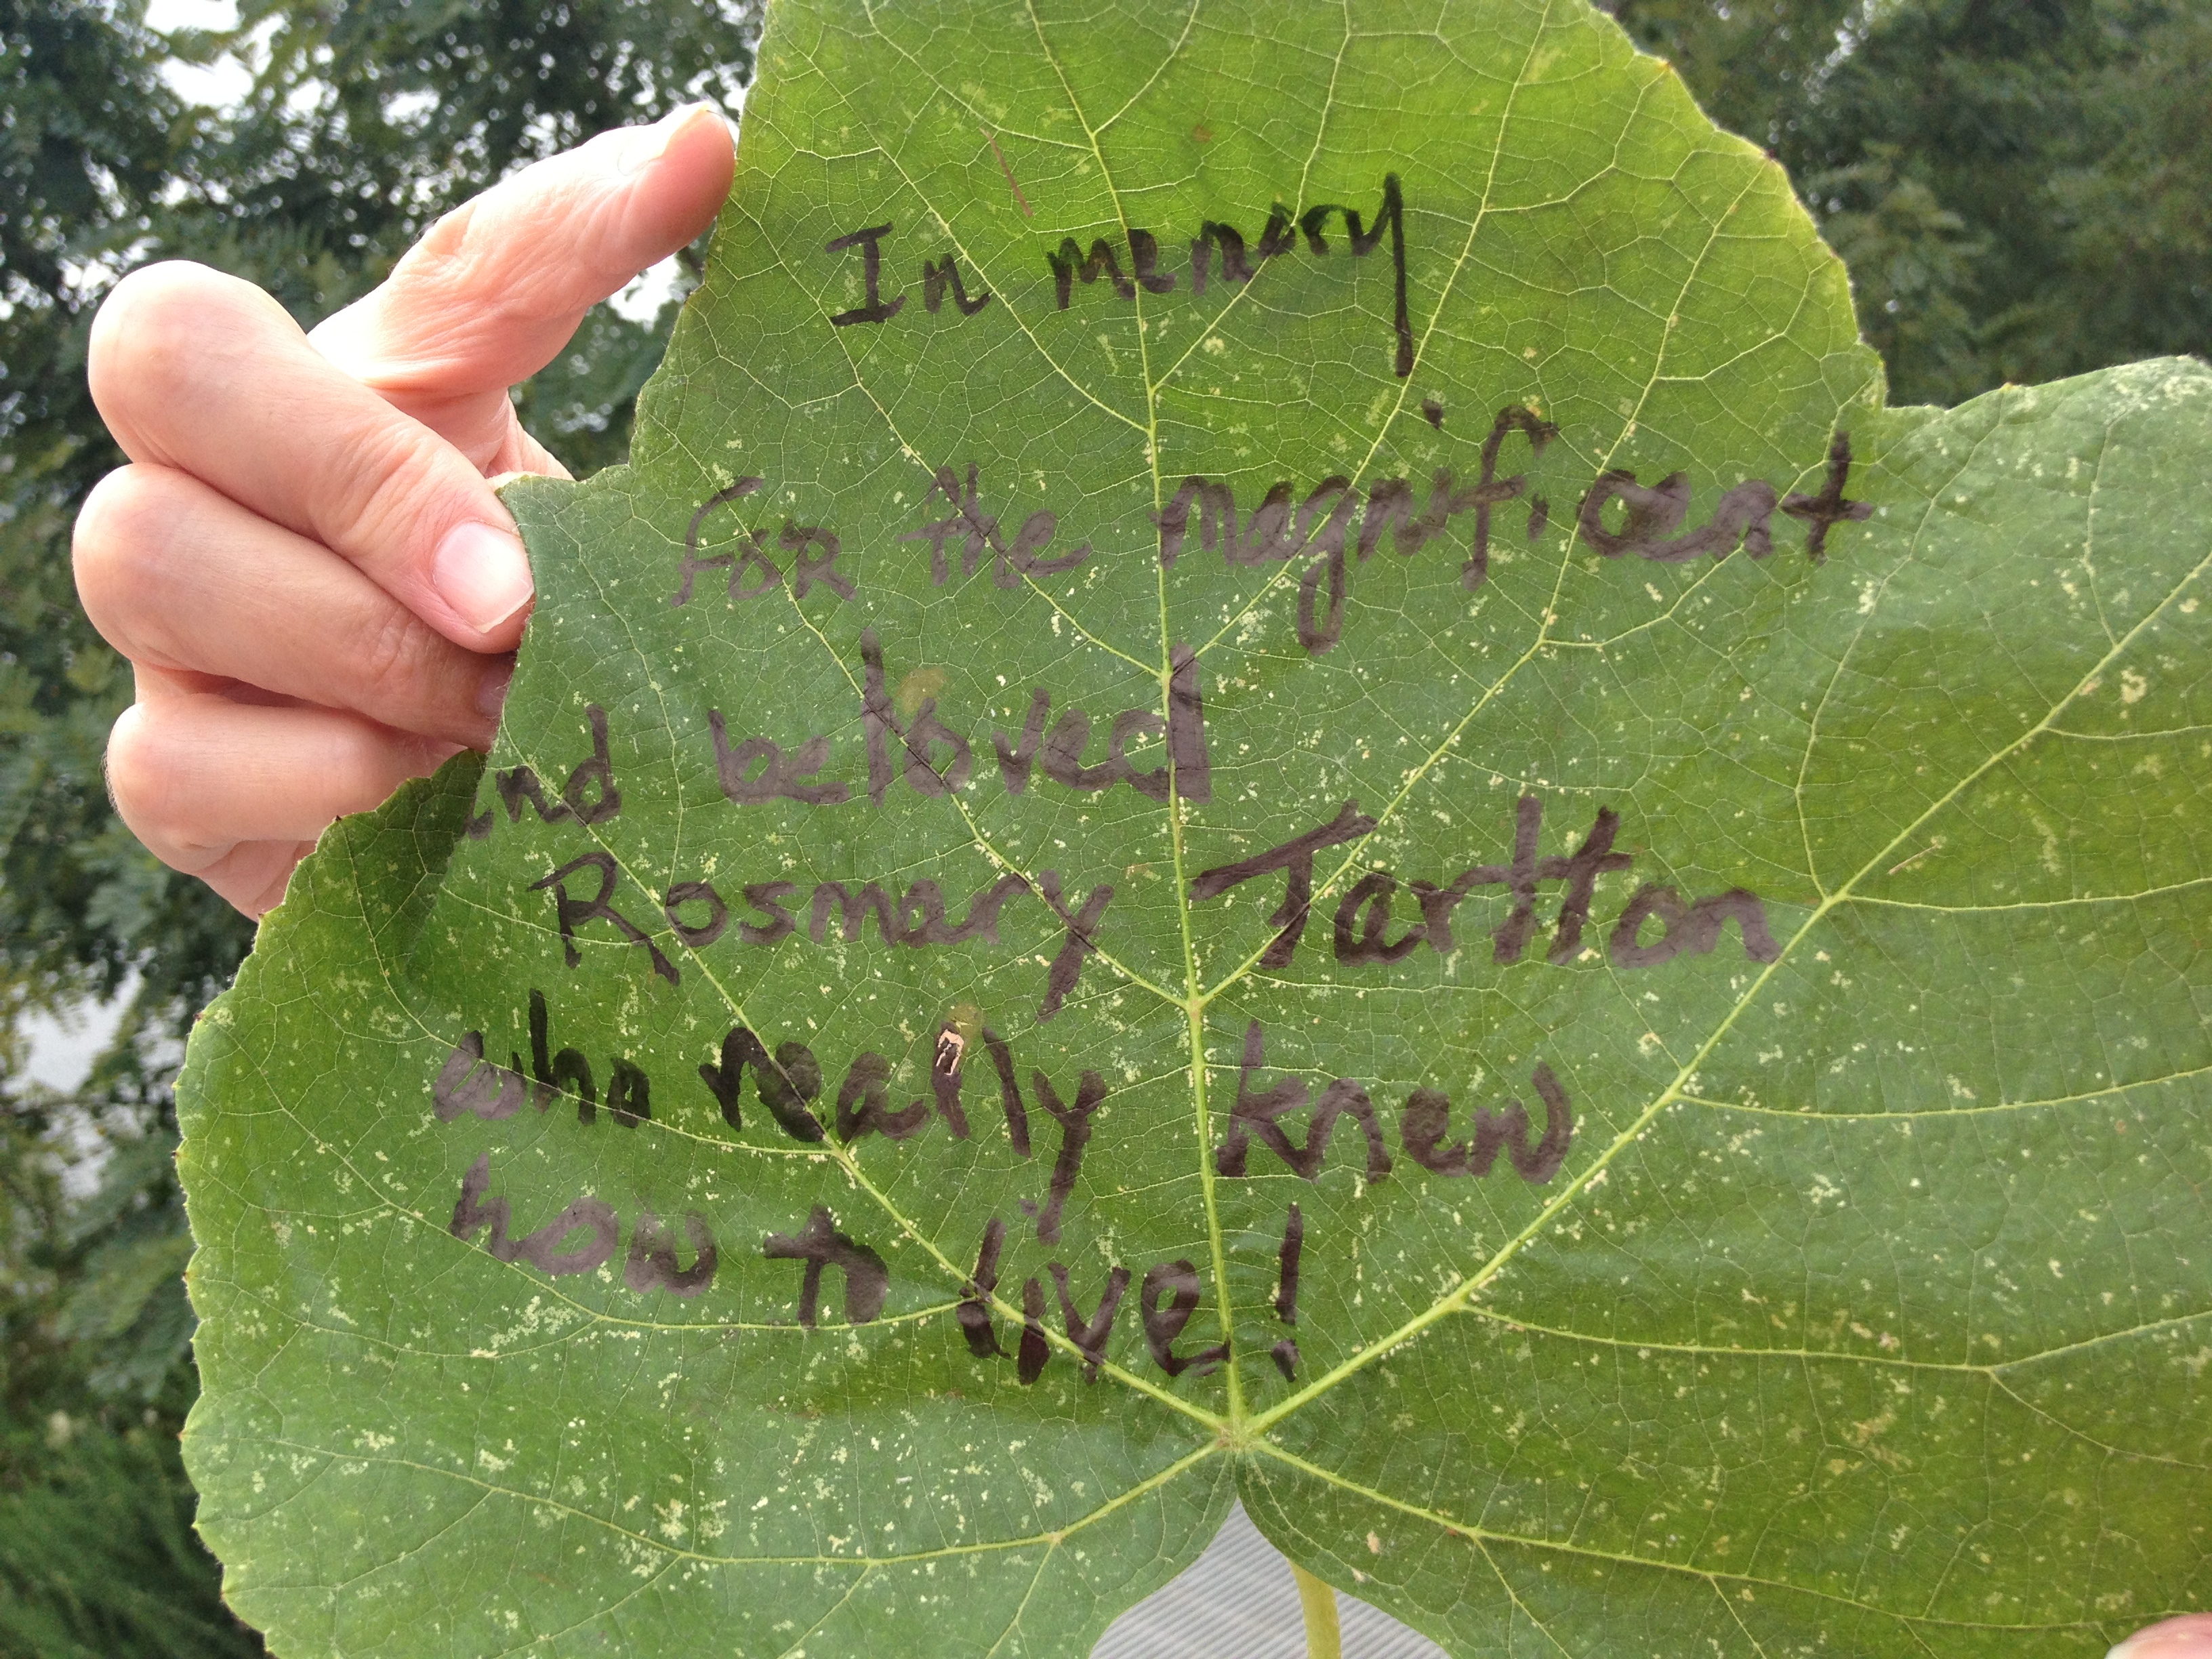 In memory
for the magnificent
and beloved
Rosmary Tartton
who really knew
how to live!